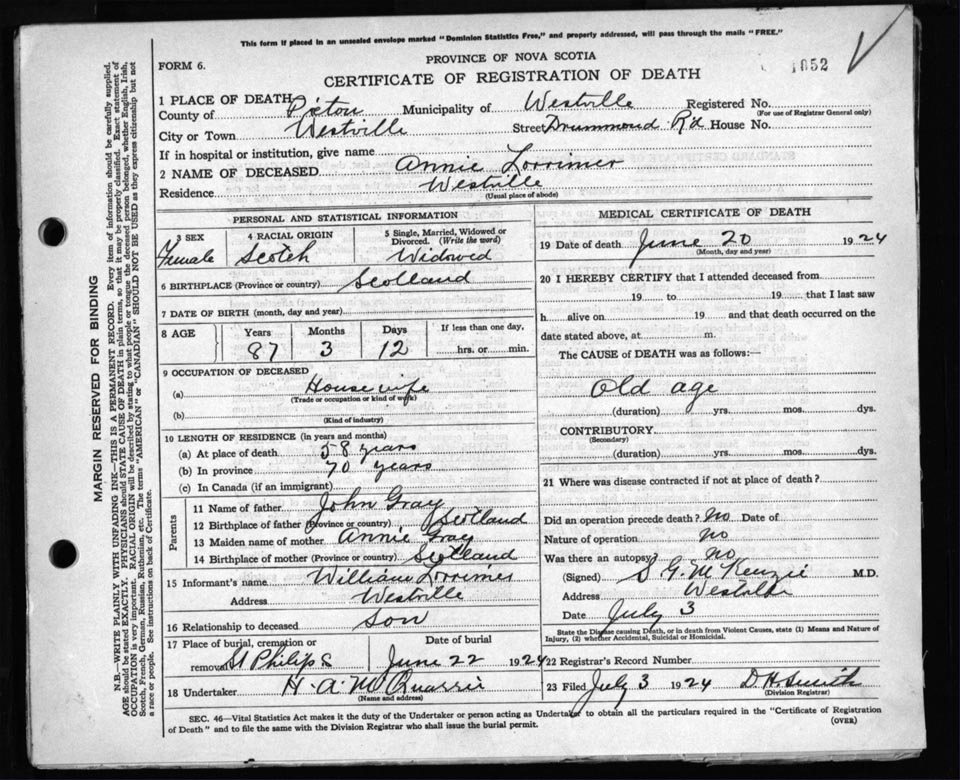 This form if placed in an unsealed envelope marked "Dominion Statistics Free," and property addressed, will pass through the mails "FREE."
FORM 6.
PROVINCE OF NOVA SCOTIA
CERTIFICATE OF REGISTRATION OF DEATH
1052
1 PLACE OF DEATH
County of Pictou Municipality of Westville Registered No.
(For use of Registrar General only)
City or Town Westville Street Drummond Rd House No.
If in hospital or institution, give name
2 NAME OF DECEASED Annie Lorrimer
Residence Westville
(Usual place of abode)
PERSONAL AND STATISTICAL INFORMATION
3 SEX 4 RACIAL ORIGIN 5 Single, Married, Widowed or Divorced. (Write the word)
Female Scotch Widowed
6 BIRTHPLACE (Province or country) Scotland
7 DATE OF BIRTH (month, day and year)
8 AGE Years Months Days If less than one day,
87 3 12 hrs. or min.
9 OCCUPATION OF DECEASED
(a) House wife
(Trade or occupation or kind of work)
(b)
(Kind of industry)
10 LENGTH OF RESIDENCE (in years and months)
(a) At place of death 58 years
(b) In province 70 years
(c) In Canada (if an immigrant)
Parents
11 Name of father John Gray
12 Birthplace of father (Province or country) Scotland
13 Maiden name of mother Annie Gray
14 Birthplace of mother (Province or country) Scotland
15 Informant's name William Lorrimer
Address Westville
16 Relationship to deceased son
17 Place of burial, cremation or Date of burial
removal St Philips June 22 1924
18 Undertaker H. A. McQuarrie
(Name and address)
MEDICAL CERTIFICATE OF DEATH
19 Date of death June 20 1924
(Month, day and year)
20 I HEREBY CERTIFY that I attended deceased from
19 to 19 that I last saw
h alive on 19 and that death occurred on the
date stated above, at m.
The CAUSE of DEATH was as follows:—
Old age
(duration) yrs. mos. dys.
CONTRIBUTORY
(Secondary)
(duration) yrs. mos. dys.
21 Where was disease contracted if not at place of death?
Did an operation precede death? No Date of
Nature of operation no
Was there an autopsy? no
(Signed) S G. McKenzie M.D.
Address Westville
Date July 3
State the Disease causing Death, or in death from Violent Causes, state (1) Means and Nature of
Injury, (2) whether Accidental, Suicidal or Homicidal.
22 Registrar's Record Number
23 Filed July 3 1924 D. H. Smith
(Division Registrar)
SEC. 46—Vital Statistics Act makes it the duty of the Undertaker or person acting as Undertaker to obtain all the particulars required in the "Certificate of Registration
of Death" and to file the same with the Division Registrar who shall issue the burial permit.
(OVER)
MARGIN RESERVED FOR BINDING
N.B.—WRITE PLAINLY WITH UNFADING INK—THIS IS A PERMANENT RECORD. Every item of information should be carefully supplied.
AGE should be stated EXACTLY. PHYSICIANS should STATE CAUSE OF DEATH in plain terms, so that it may be properly classified. Exact statement of
OCCUPATION is very important. RACIAL ORIGIN will be described by stating to what people or tongue the deceased person belonged, whether English, Irish,
Scotch, French, German, Russian, Ruthenian, etc. The terms "AMERICAN" or "CANADIAN" SHOULD NOT BE USED as they express citizenship but not
a race or people. See instructions on back of Certificate.